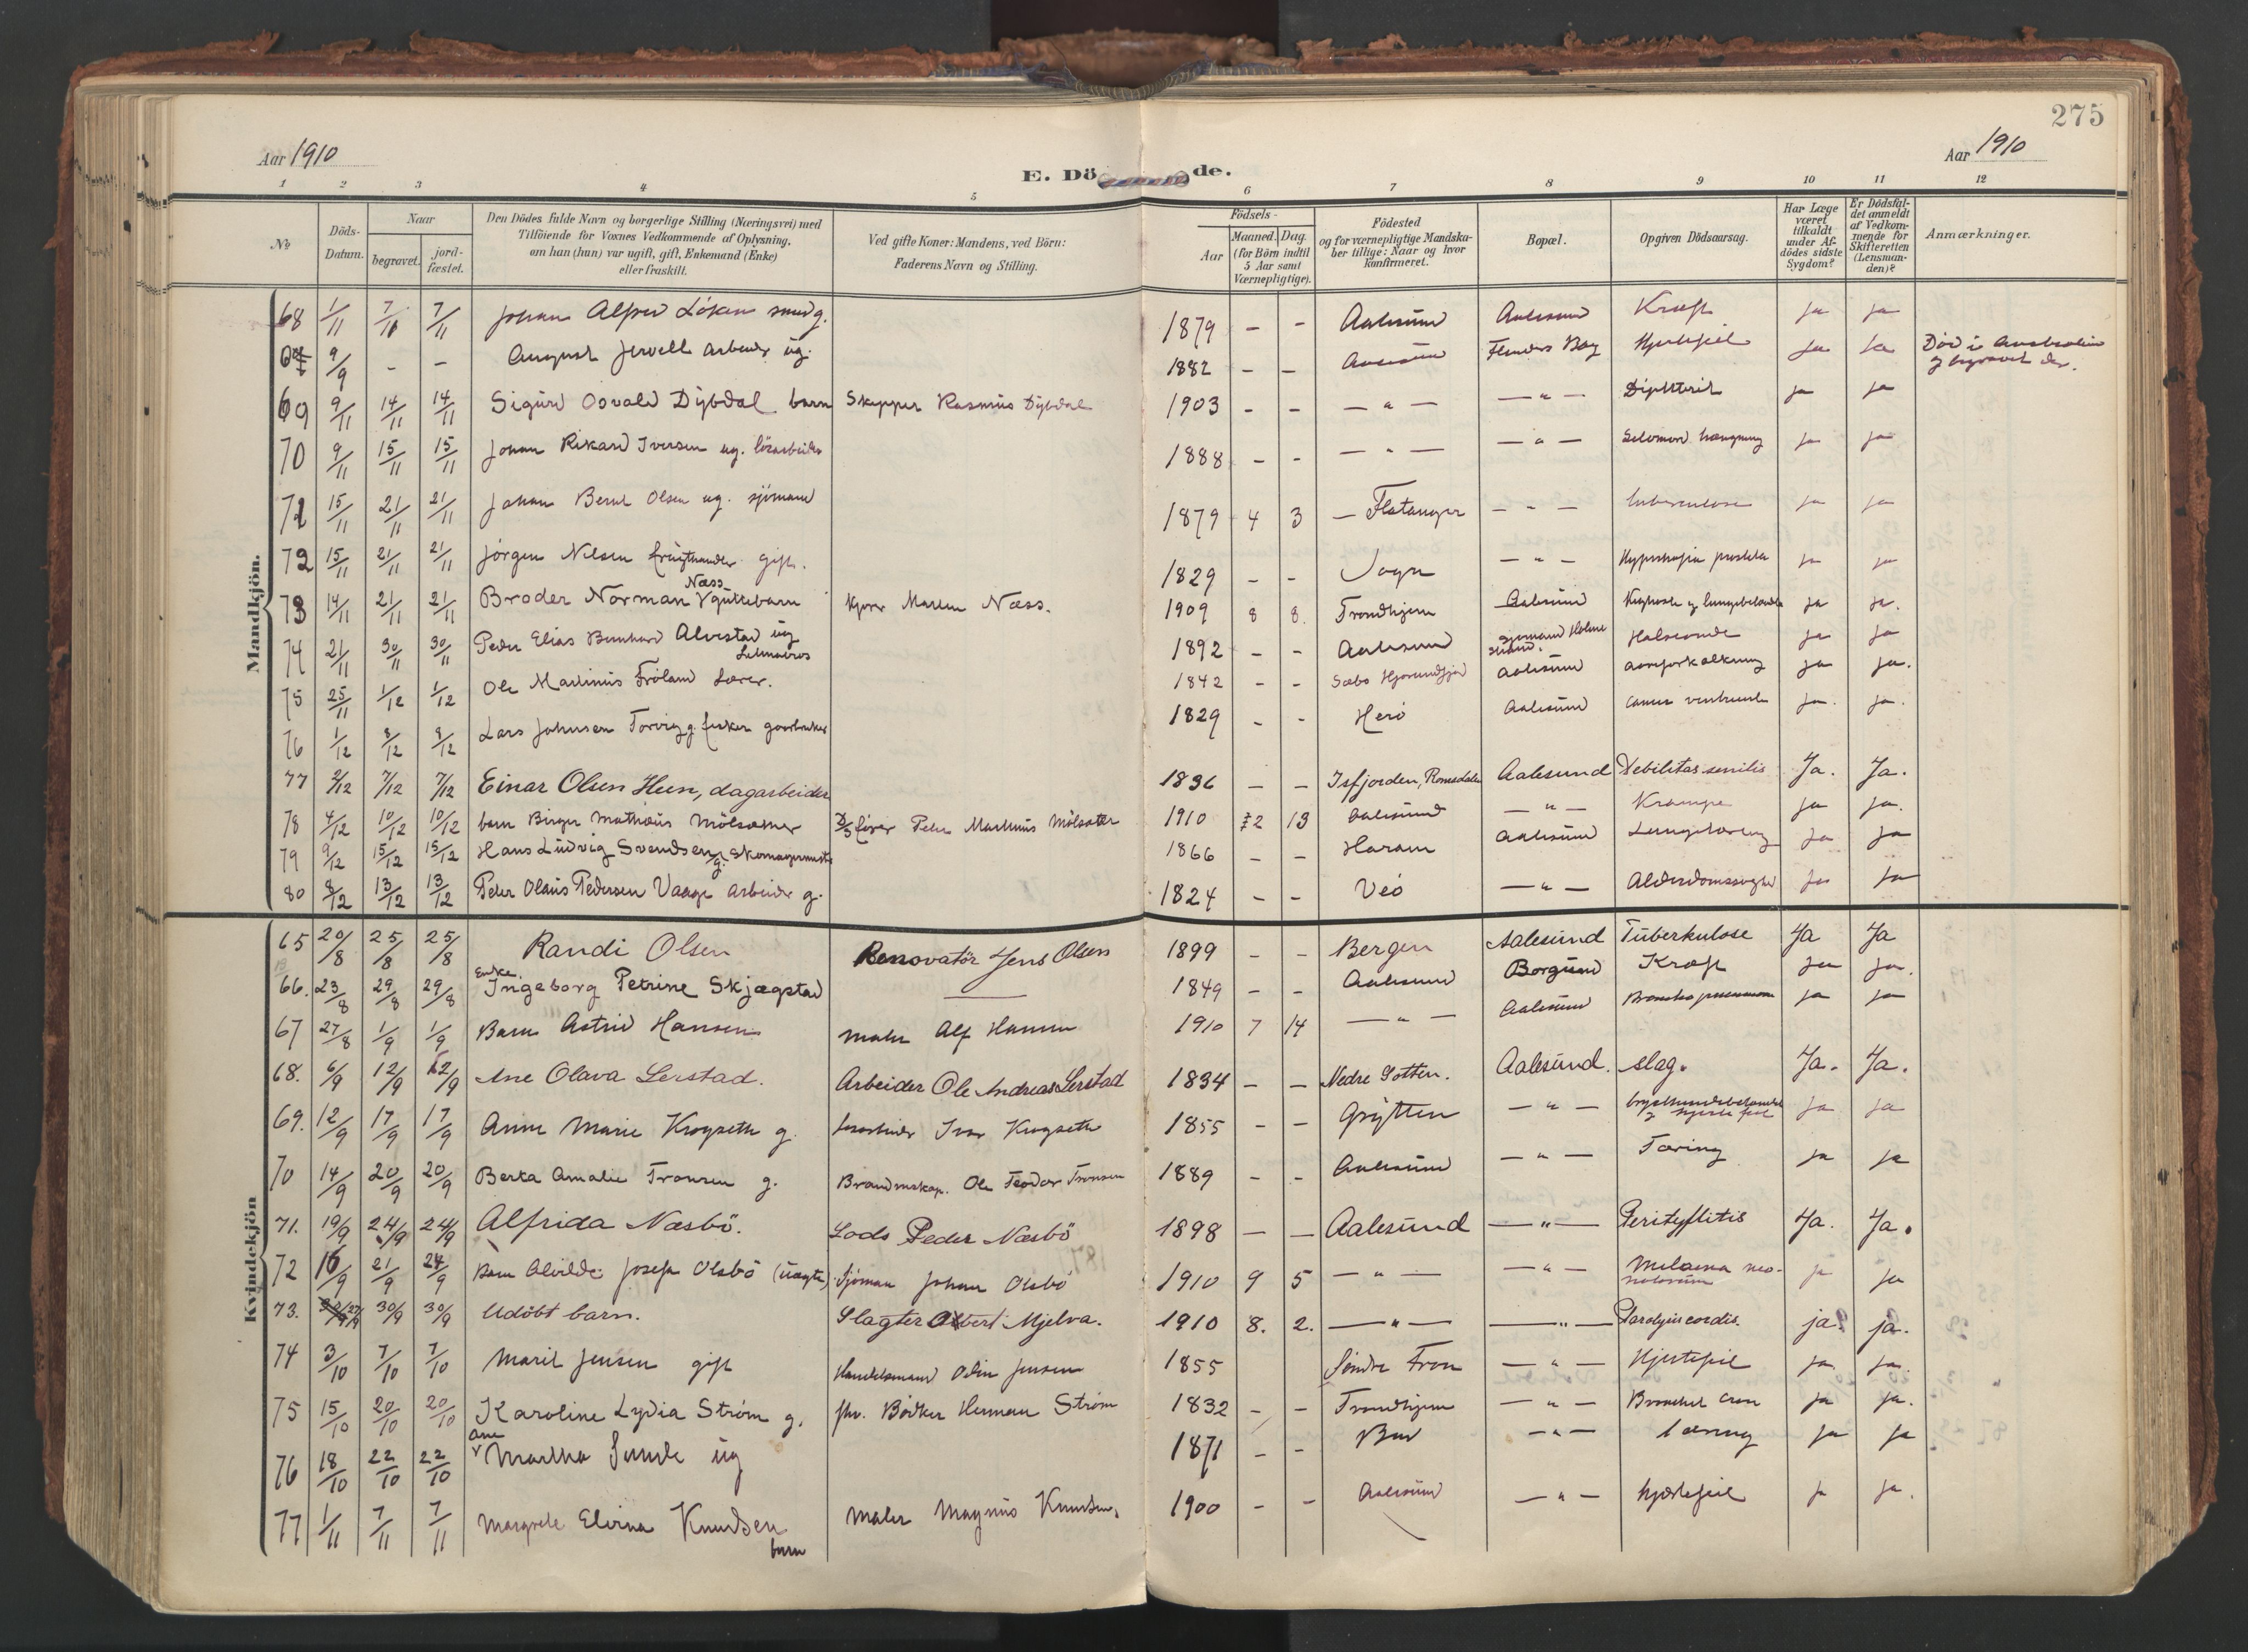 275
Aar 1910
E. Dö de.
Aar 1910
1 2 3 4 5 6 7 8 9 10 11 12
№
Döds-Datum.
Naar
begravet. jord-fæstet.
Den Dödes fulde Navn og borgerlige Stilling (Næringsvei) med
Tilföiende for Voxnes Vedkommende af Oplysning,
om han (hun) var ugift, gift, Enkemand (Enke)
eller fraskilt.
Ved gifte Koner: Mandens, ved Börn:
Faderens Navn og Stilling.
Födsels-
Aar Maaned. Dag.
(for Börn indtil
5 Aar samt
Værnepligtige).
Födested
og for værnepligtige Mandska-
ber tillige: Naar og hvor
konfirmeret.
Bopæl.
Opgiven Dödsaarsag.
Har Læge
været
tilkaldt
under Af-
dödes sidste
Sygdom?
Er Dödsfal-
det anmeldt
af Vedkom-
mende for
Skifteretten
(Lensman-
den)?
Anmærkninger.
Mandkjön.
68 1/11 7/11 7/11 Johan Alfred g. 1879 - - Aalesund Aalesund Kræft ja ja
9/9 - - August Jervell arbeider ug. 1882 - - Aalesund Flinders Bay Hjertefeil ja ja Död i Australien
og begravet der.
69 9/11 14/11 14/11 Sigurd Osvald Dybdal barn Skipper Rasmus Dybdal 1903 - - — " — — " — Diphterit ja ja
70 9/11 15/11 15/11 Johan Rikard Iversen ug. lösarbeider 1888 - - — " — — " — Selvmord hængning ja ja
71 15/11 21/11 21/11 Johan Bernt Olsen ug. sjömand 1879 4 3 — Flatanger — " — tuberculose ja ja
72 15/11 21/11 21/11 Jörgen Nilsen frugthandler gift. 1829 - - Sogn — " — ja ja
73 14/11 21/11 21/11 Broder Norman Næss guttebarn Martin Næss. 1909 8 8. Trondhjem Aalesund Kighoste og lungebetændelse ja ja.
74 21/11 30/11 30/11 Peder Elias Bernhard Alvestad ug 1892 - - Aalesund Halsonde ja ja
75 25/11 1/12 1/12 Ole Martinus Fröland Lærer. 1842 - - Sæbö Hjörundfjord Aalesund aareforkalkning ja ja.
76 1/12 8/12 8/12 Lars Johnsen g. fisker gaardbruker 1829 - - Herö Aalesund cancer ventriculi ja. ja.
77 2/12 7/12 7/12 Einar Olsen Heen, dagarbeider 1836 - - Isfjorden, Romsdalen Aalesund Debilitas senilis Ja. Ja.
78 4/12 10/12 10/12 barn Birger Mathæus Mölsæter D/S förer Peter Martinus Mölsæter 1910 2 13 Aalesund — " — Krampe ja ja.
79 9/12 15/12 15/12 Hans Ludvig Svendsen g. Skomagermester 1866 - - Haram Aalesund ja ja
80 8/12 13/12 13/12 Peder Olaus Pedersen Vaage arbeider g. 1824 - - Veö — " — Alderdomssvaghed ja ja
Kvindekjön
65 20/8 25/8 25/8 Randi Olsen Renovatör Jens Olsen 1899 - - Bergen Aalesund Tuberkulose Ja Ja
66. 23/8 29/8 29/8 Enke Ingeborg Petrine Skjægstad — 1849 - - Aalesund Borgund Kræft ja ja.
67 27/8 1/9 1/9 Barn Astrid Hansen Maler Alf Hansen 1910 7 14 — " — Aalesund Bronchopneumoni ja ja
68. 6/9 12/9 12/9 Ane Olava Lerstad. Arbeider Ole Andreas Lerstad 1834 - - Nedre Slotten. Aalesund. slag. Ja. Ja.
69. 12/9 17/9 17/9 Anne Marie Krogseth g. Ivar Krogseth 1855 - - Grytten — " — ja ja
70 14/9 20/9 20/9 Berta Amalie Tronsen g. Ole Teodor Tronsen 1889 - - Aalesund — " — Tæring ja ja
71. 19/9 24/9 24/9 Alfrida Næsbö. Lods Peder Næsbö 1898 — — Aalesund — " — Perityflitis Ja. Ja.
72 16/9 21/9 24/9 Barn Alvilde Josefa Olsbö (uægte) Sjöman Johan Olsbö 1910 9 5 — " — — " — Melæna neo-
natorum ja ja
73. 27/9 30/9 30/9 Udöbt barn. Slagter Albert Mjelva. 1910 8. 2. — " — — " — Paralysis cordis. ja. ja.
74 3/10 7/10 7/10 Marit Jensen gift Handelsmand Odin Jensen 1855 Söndre Fron — " — Hjertefeil ja ja.
75 15/10 20/10 20/10 Karoline Lydia Ström g. fhv. Bödker Herman Ström 1832 - - Trondhjem — " — ja ja.
76 18/10 22/10 22/10 Ane Martha Sunde ug 1871 - - Bud — " — tæring ja ja
77 1/11 7/11 7/11 Margrete Elvina Knudsen Maler Magnus Knudsen. 1900 - - Aalesund — " — hjertefeil ja ja.
barn